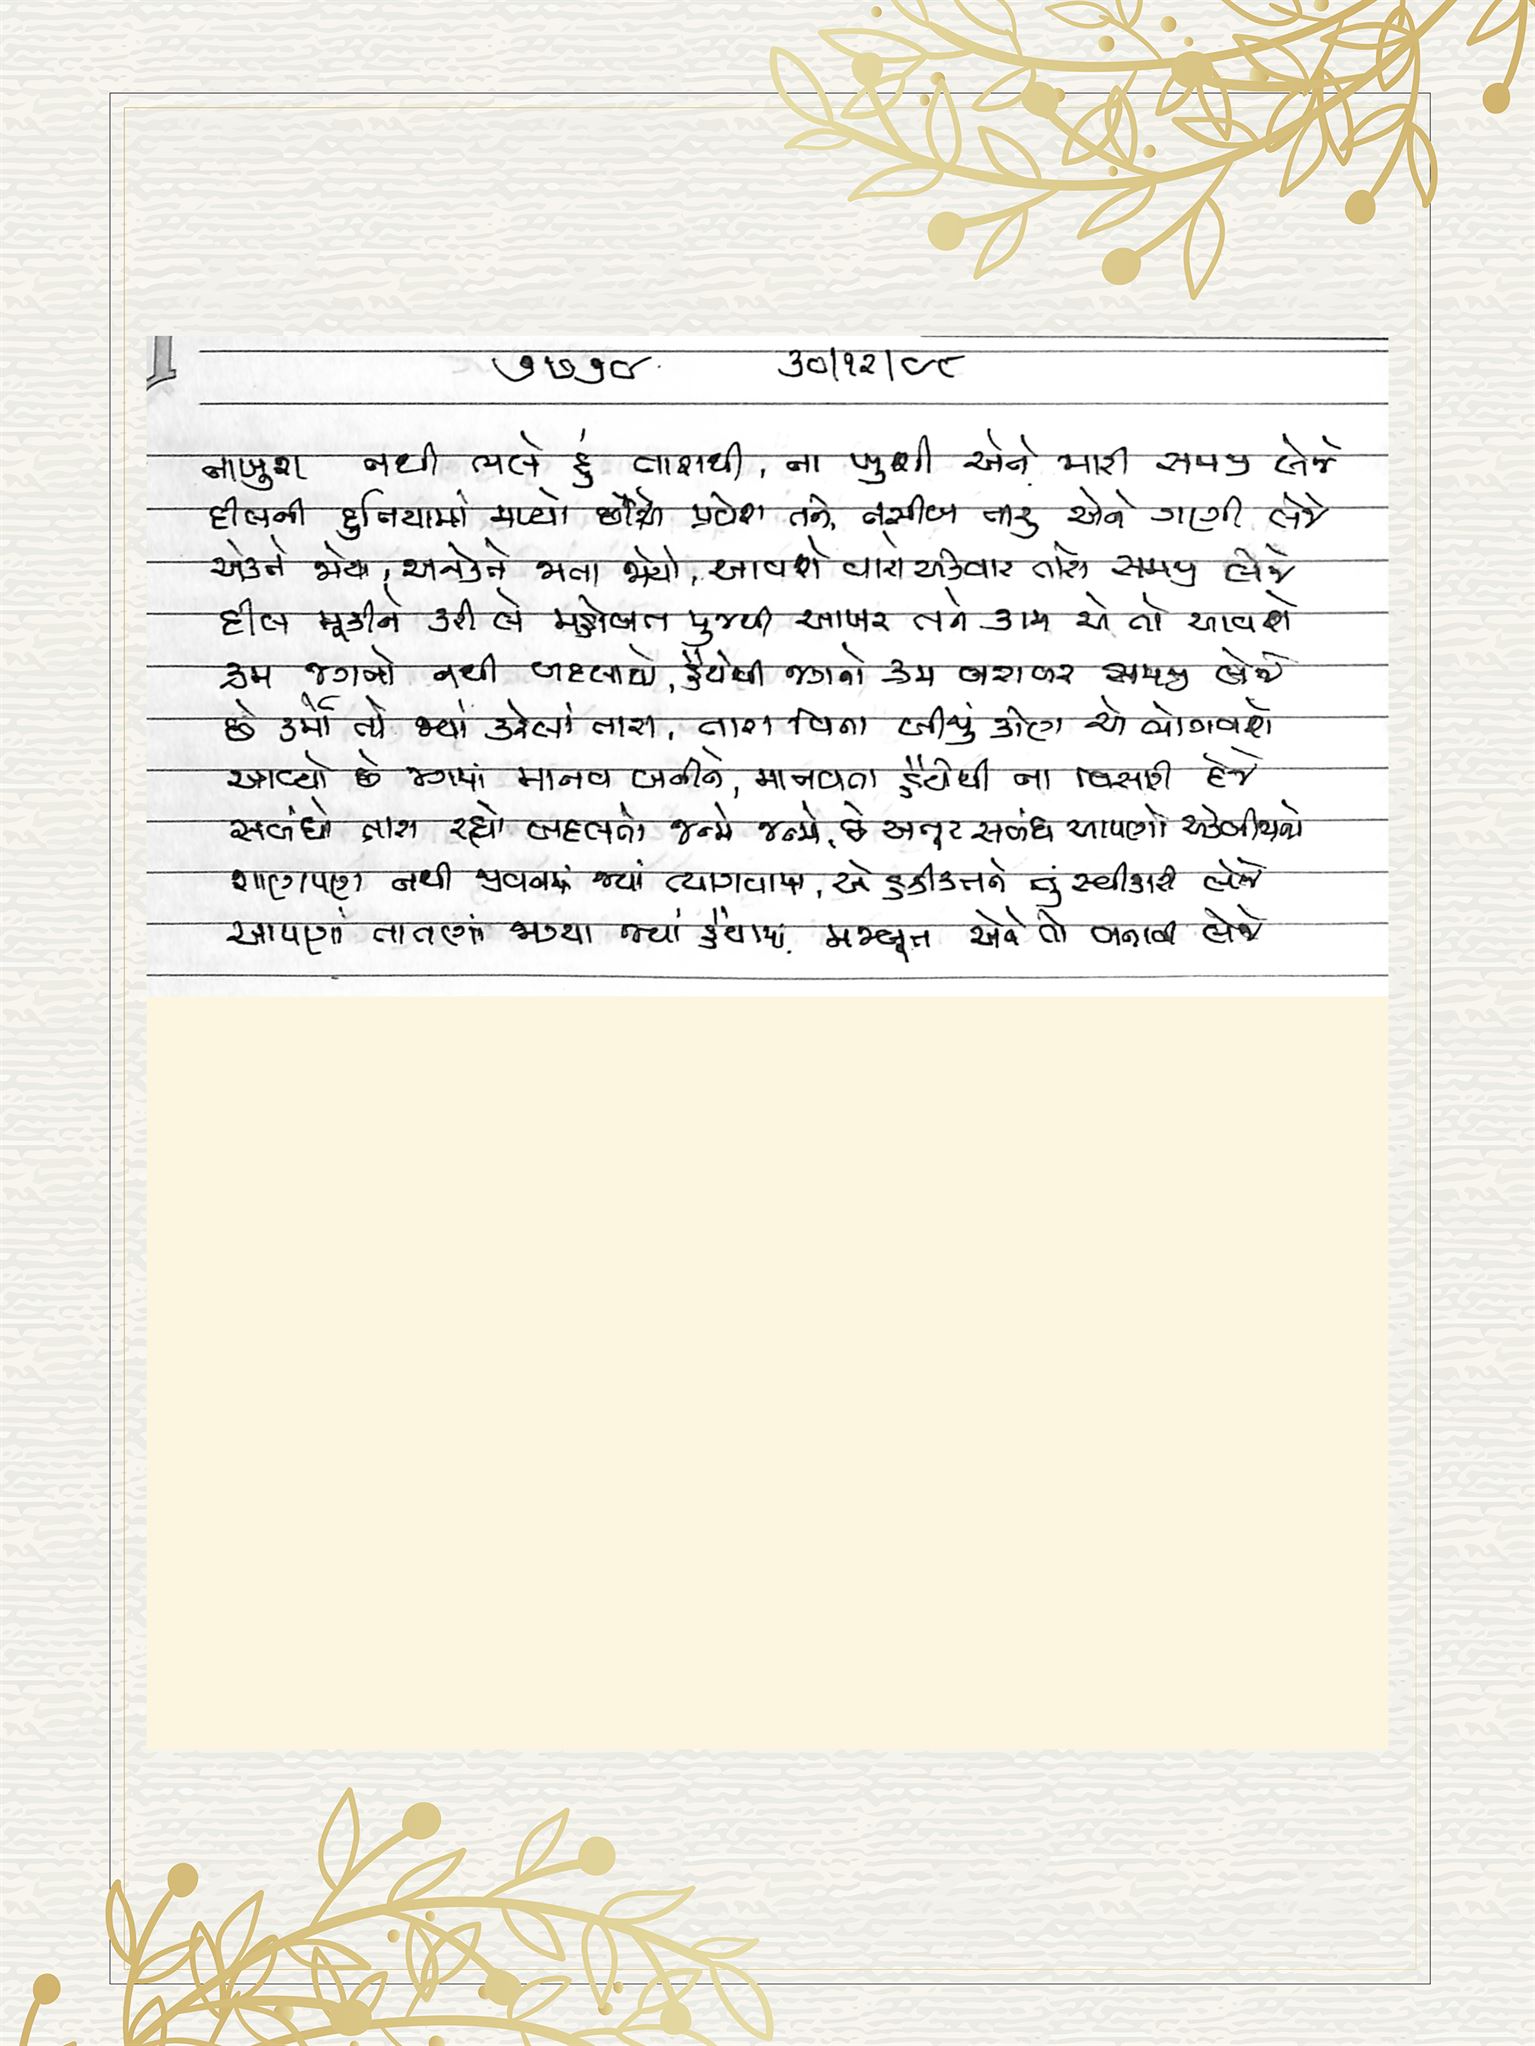 ૭૭૧૪ ૩૦/૧૨/૯૮
નાખુશ નથી ભલે હું તારાથી, ના ખુશી એને મારી સમજી લેજે
દીલની દુનિયામાં પ્રવેશ તને, નસીબ તારું એને ગણી લેજે
એકને જોયા, અનેકને જતા જોયો, આવશે વારો એકવાર તારો સમજી લેજે
દીલ મૂકીને કરી લે મહોબત પ્રભુથી આખર તને કામ એ તો આવશે
ક્રમ જગનો નથી બદલાયો, હૈયેથી જગનો ક્રમ બરાબર સમજી લેજે
છે કર્મો તો જ્યાં કરેલાં તારા, તારા વિના બીજું કોણ એ ભોગવશે
આવ્યો છે જગમાં માનવ બનીને, માનવતા હૈયેથી ના વિસારી દેજે
સબંધો તારા રહ્યો બદલતો જન્મે જન્મે, છે અતૂટ સબંધ આપણો
શાણપણ નથી જીવનમાં જ્યાં ત્યાગવામાં, એ હકીકતને તું સ્વીકારી લેજે
આપણાં તાતણાં જાગ્યા જ્યાં હૈયામાં, મજબૂત એને તો બનાવી લેજે